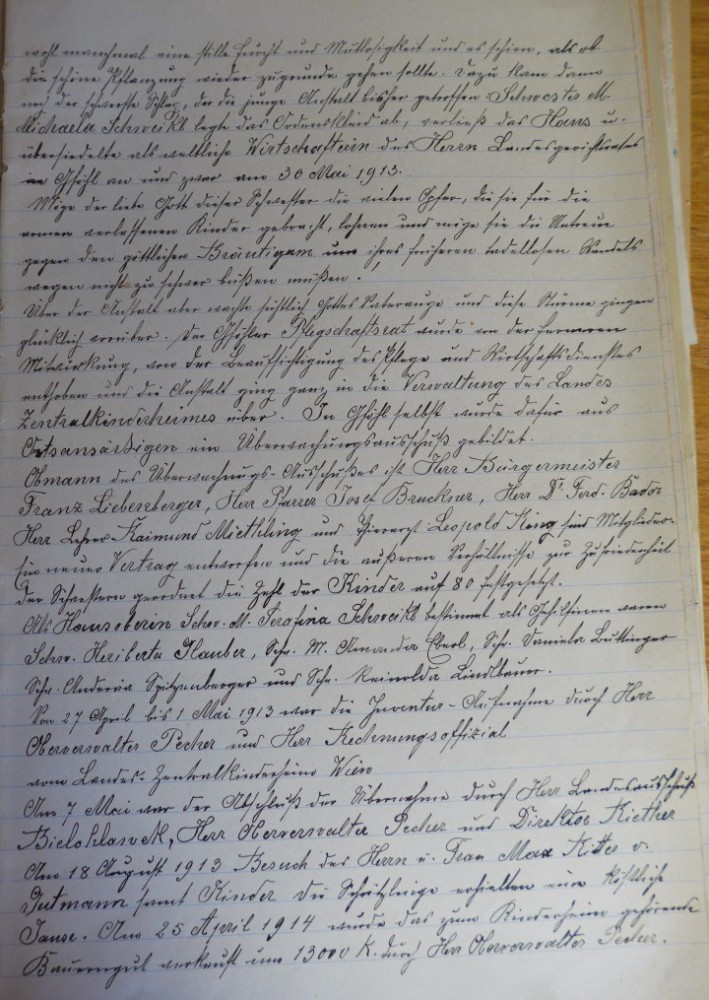 wohl manchmal eine stille Furcht und Mutlosigkeit und es schien, als ob
die schöne Pflanzung wieder zugrunde gehen sollte. Dazu kam dann
noch der schwerste Schlag, der die junge Anstalt bisher getroffen. Schwester M.
Michaela Schweikl legte das Ordenskleid ab, verließ das Haus u.
übersiedelte als weltliche Wirtschafterin des Herrn Landesgerichtsrates
in Gföhl an und zwar am 30 Mai 1913.
Möge der liebe Gott dieser Schwester die vielen Opfer, die sie für die
armen verlassenen Kinder gebracht, lohnen und möge sie die Untreue
gegen den göttlichen Bräutigam um ihres früheren tadellosen Wandels
wegen nicht zu schwer büßen müßen.
Über der Anstalt aber wachte sichtlich Gottes Vaterauge und diese Stürme gingen
glücklich vorüber. Der Gföhler Pflegschaftsrat wurde von der ferneren
Mitwirkung, von der Beaufsichtigung des Pflege und Wirtschaftsdienstes
enthoben und die Anstalt ging ganz in die Verwaltung des Landes
Zentralkinderheimes über. In Gföhl selbst wurde dafür aus
Ortsansässigen ein Überwachungsausschuß gebildet.
Obmann des Überwachungs-Ausschußes ist Herr Bürgermeister
Franz Liebenberger, Herr Pfarrer Josef Bruckner, Herr Dr Ferd. Bador
Herr Lehrer Raimund Miethling und Tierarzt Leopold King sind Mitglieder.
Ein neuer Vertrag entworfen und die äußeren Verhältnisse zur Zufriedenheit
der Schwestern geordnet die Zahl der Kinder auf 80 festgesetzt.
Als Hausoberin Schw. M. Serafina Schweikl bestimmt als Gehilfinen waren
Schw. Heriberta Glauber, Schw. M. Amanda Eberl, Schw. Daniela Buttinger
Schw. Andrea Spitzenberger und Schw. Reinolda Lindlbauer.
Von 27 April bis 1 Mai 1913 war die Inventur-Aufnahme durch Herr
Oberverwalter Pecher und Herr Rechnungsoffizial
vom Landes-Zentralkinderheim Wien
Am 7 Mai war der Abschluß der Übernahme durch Herr Landesausschuß
Bielohlawek, Herr Oberverwalter Pecher und Direktor Riether
Am 18 August 1913 Besuch des Herrn u. Frau Max Ritter v.
Gutmann samt Kinder die Schützlinge erhielten eine köstliche
Jause. Am 25 April 1914 wurde das zum Kinderheim gehörende
Bauerngut verkauft um 13000 K. durch Herr Oberverwalter Pecher.